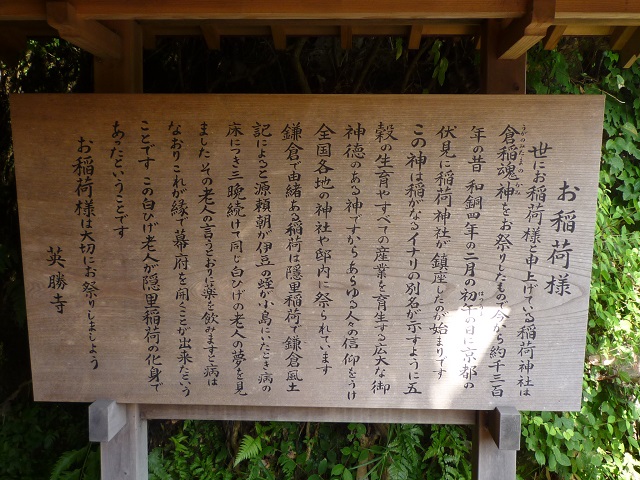 お稲荷様
世にお稲荷様と申上げている稲荷神社は
倉稲魂神をお祭りしたもので今から約千三百
年の昔 和銅四年の二月の初午の日に京都の
伏見に稲荷神社が鎮座したのが始まりです
この神は稲がなるイナリの別名が示すように五
穀の生育やすべての産業を育生する広大な御
神徳のある神ですからあらゆる人々の信仰をうけ
全国各地の神社や邸内に祭られています
鎌倉で由緒ある稲荷は隠里稲荷で鎌倉風土
記によると源頼朝が伊豆の蛭が小島にいたとき病の
床につき三晩続けて同じ白ひげの老人の夢を見
ました その老人の言うとおりに薬を飲みますと病は
なおりこれが縁で幕府を開くことが出来たという
ことです この白ひげ老人が隠里稲荷の化身で
あったということです
お稲荷様は大切にお祭りしましよう
英勝寺